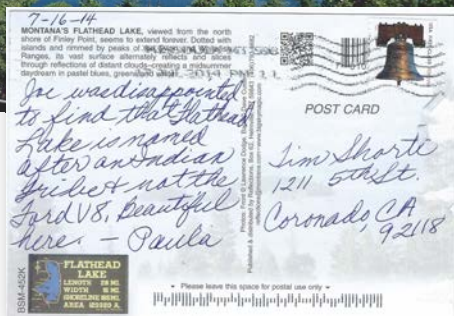 7-16-14
MONTANA'S FLATHEAD LAKE, viewed from the north
shore of Finley Point, seems to extend forever. Dotted with
islands and rimmed by peaks of
Ranges, its vast surface alternately reflects and slices
through reflections of distant clouds-creating a midsummer
daydream in pastel blues, greens and
Joe was disappointed
to find that Flathead
Lake is named
after an Indian
Tribe & not the
Ford V8. Beautiful
here. - Paula
FLATHEAD
LAKE
LENGTH 28 MI.
WIDTH
SHORELINE
AREA
BSM-452K
POST CARD
Tim Shorte
1211 5th St.
Coronado, CA
92118
Please leave this space for postal use only